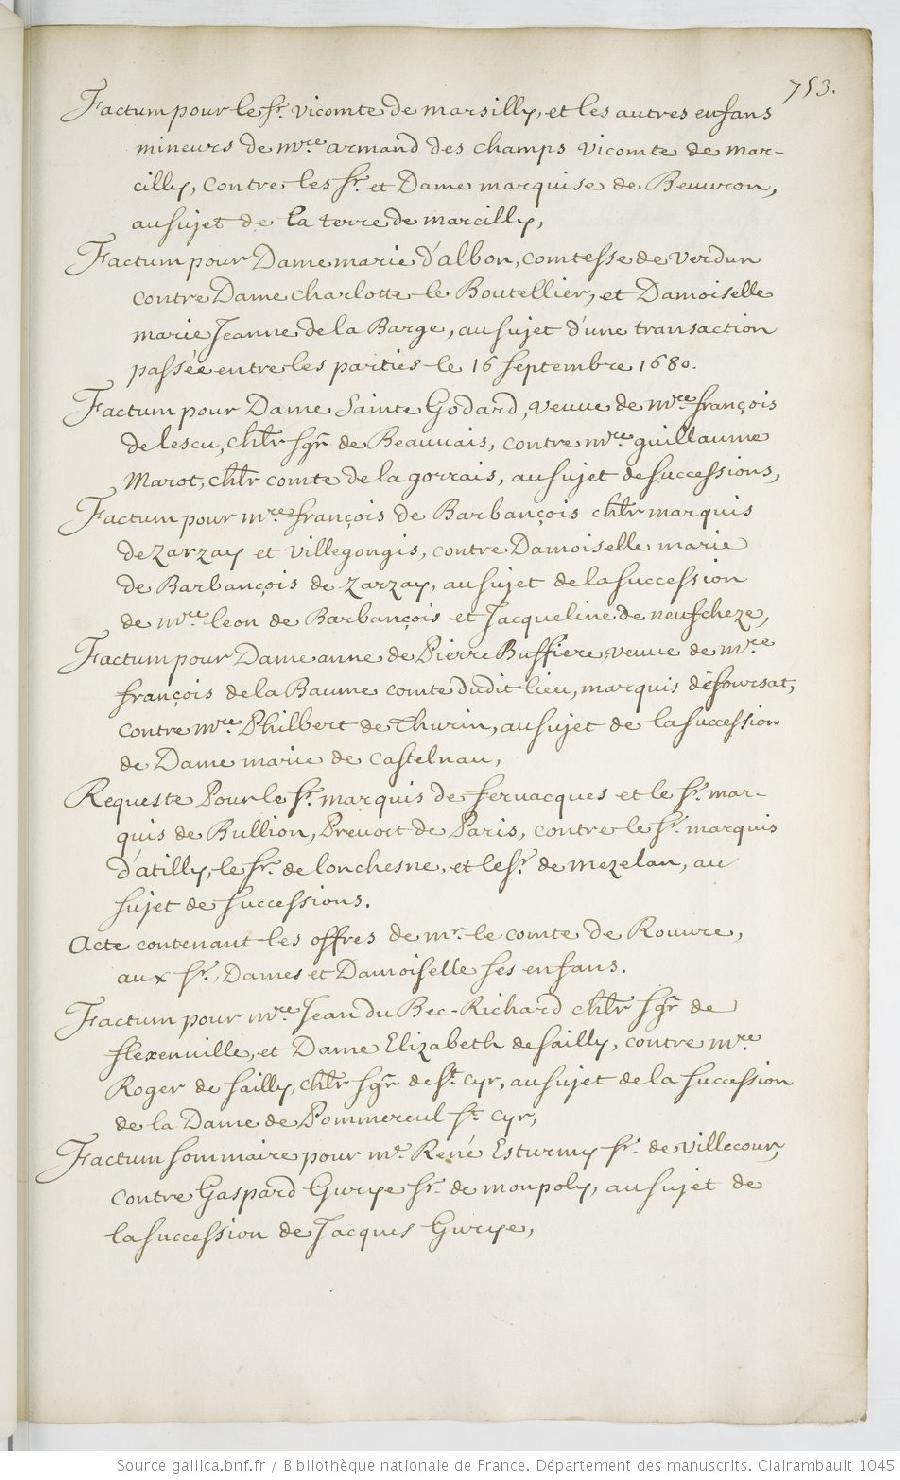 753.
Factum pour le Sr. Vicomte de Marsilly, et les autres enfans
mineurs de Mre armand des champs Vicomte de Mar-
cilly, contre les Sr. et Dame marquise de Beuvron,
au sujet de la terre de Marcilly,
Factum pour Dame marie d'albon, comtesse de Verdun
contre Dame charlotte le Boutellier, et Damoiselle
marie Jeanne de la Barge, au sujet d'une transaction
passée entre les parties le 16 septembre 1680.
Factum pour Dame Sainte Godard, veuve de Mre françois
de lescu, chlr sgr de Beauvais, contre Mre guillaume
Marot, chlr comte de la gorrais, au sujet de successions,
Factum pour Mre françois de Barbançois chlr marquis
de Zarzay et villegongis, contre Damoiselle marie
de Barbançois de Zarzay, au sujet de la succession
de Mre leon de Barbançois et Jacqueline de neufcheze,
Factum pour Dame anne de Pierre Buffiere, veuve de Mre
françois de la Baume comte dudit lieu, marquis
contre Mre Philbert de Thurin, au sujet de la succession
de Dame marie de castelnau,
Requeste Pour le Sr. marquis de fervacques et le Sr. mar-
quis de Bullion, Prevost de Paris, contre le Sr. marquis
d'atilly, le Sr. de lonchesne, et le Sr. de mezelan, au
sujet de successions.
Acte contenant les offres de Mr. le comte de Rouvre,
aux Sr. Dames et Damoiselle ses enfans.
Factum pour Mre Jean du Bec-Richard chlr sgr de
flexenville, et Dame Elizabeth de sailly, contre Mre
Roger de sailly, chlr sgr de St. cyr, au sujet de la succession
de la Dame de Pommereul St. cyr,
Factum sommaire pour Mr. René Esturmy Sr. de villecour,
contre Gaspard Gurye Sr. de monpoly, au sujet de
la succession de Jacques Gurye,
Source gallica.bnf.fr / Bibliothèque nationale de France. Département des manuscrits. Clairambault 1045